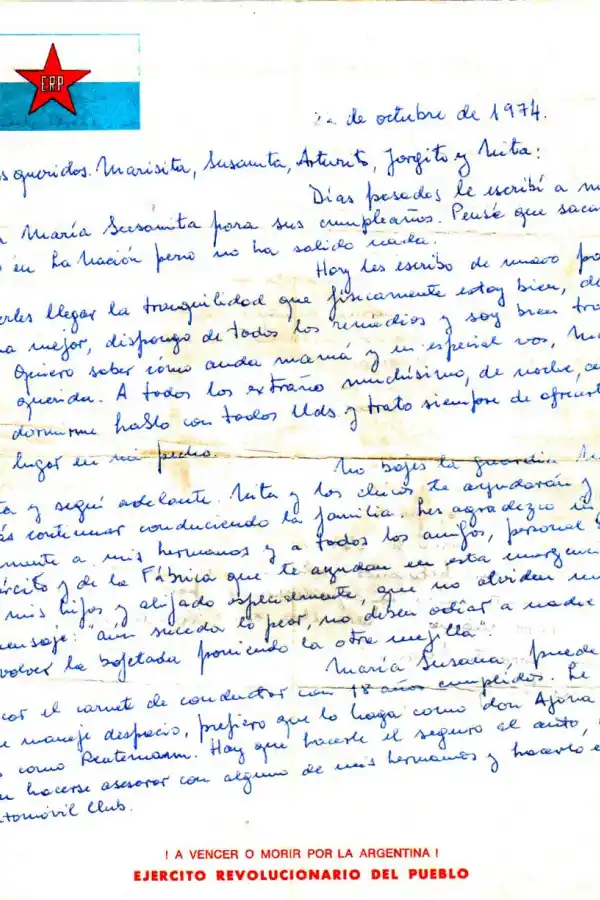 ERP
de octubre de 1974.
s queridos. Marisita, Susanita, Arturito, Jorgito y Nita:
Días pasados le escribí a m
María Susanita para sus cumpleaños. Pensé que saca
en La Nación pero no ha salido nada.
Hoy les escribo de nuevo pa
erles llegar la tranquilidad que físicamente estoy bien, de
a mejor, dispongo de todos los remedios y soy bien tra
Quiero saber cómo anda mamá y en especial vos, M
querida. A todos los extraño muchísimo, de noche, a
dormirme hablo con todos Uds. y trato siempre de ofrecerl
lugar en mi pecho.
No bajes la guardia M
ta y seguí adelante. Nita y los chicos te ayudarán y
ás continuar conduciendo la familia. Les agradezco in
mente a mis hermanos y a todos los amigos, personal
ército y de la Fábrica que te ayudan en esta emergen
mis hijos y ahijado especialmente, que no olviden mi
mensaje: "aún suceda lo peor, no deben odiar a nadie
volver la bofetada poniendo la otra mejilla".
María Susana, puede
car el carnet de conductor con 18 años cumplidos. Le
e maneje despacio, prefiero que lo haga como don Ajona
como Reutemann. Hay que hacerle el seguro al auto,
n hacerse asesorar con alguno de mis hermanos y hacerlo e
utomóvil Club.
! A VENCER O MORIR POR LA ARGENTINA !
EJERCITO REVOLUCIONARIO DEL PUEBLO